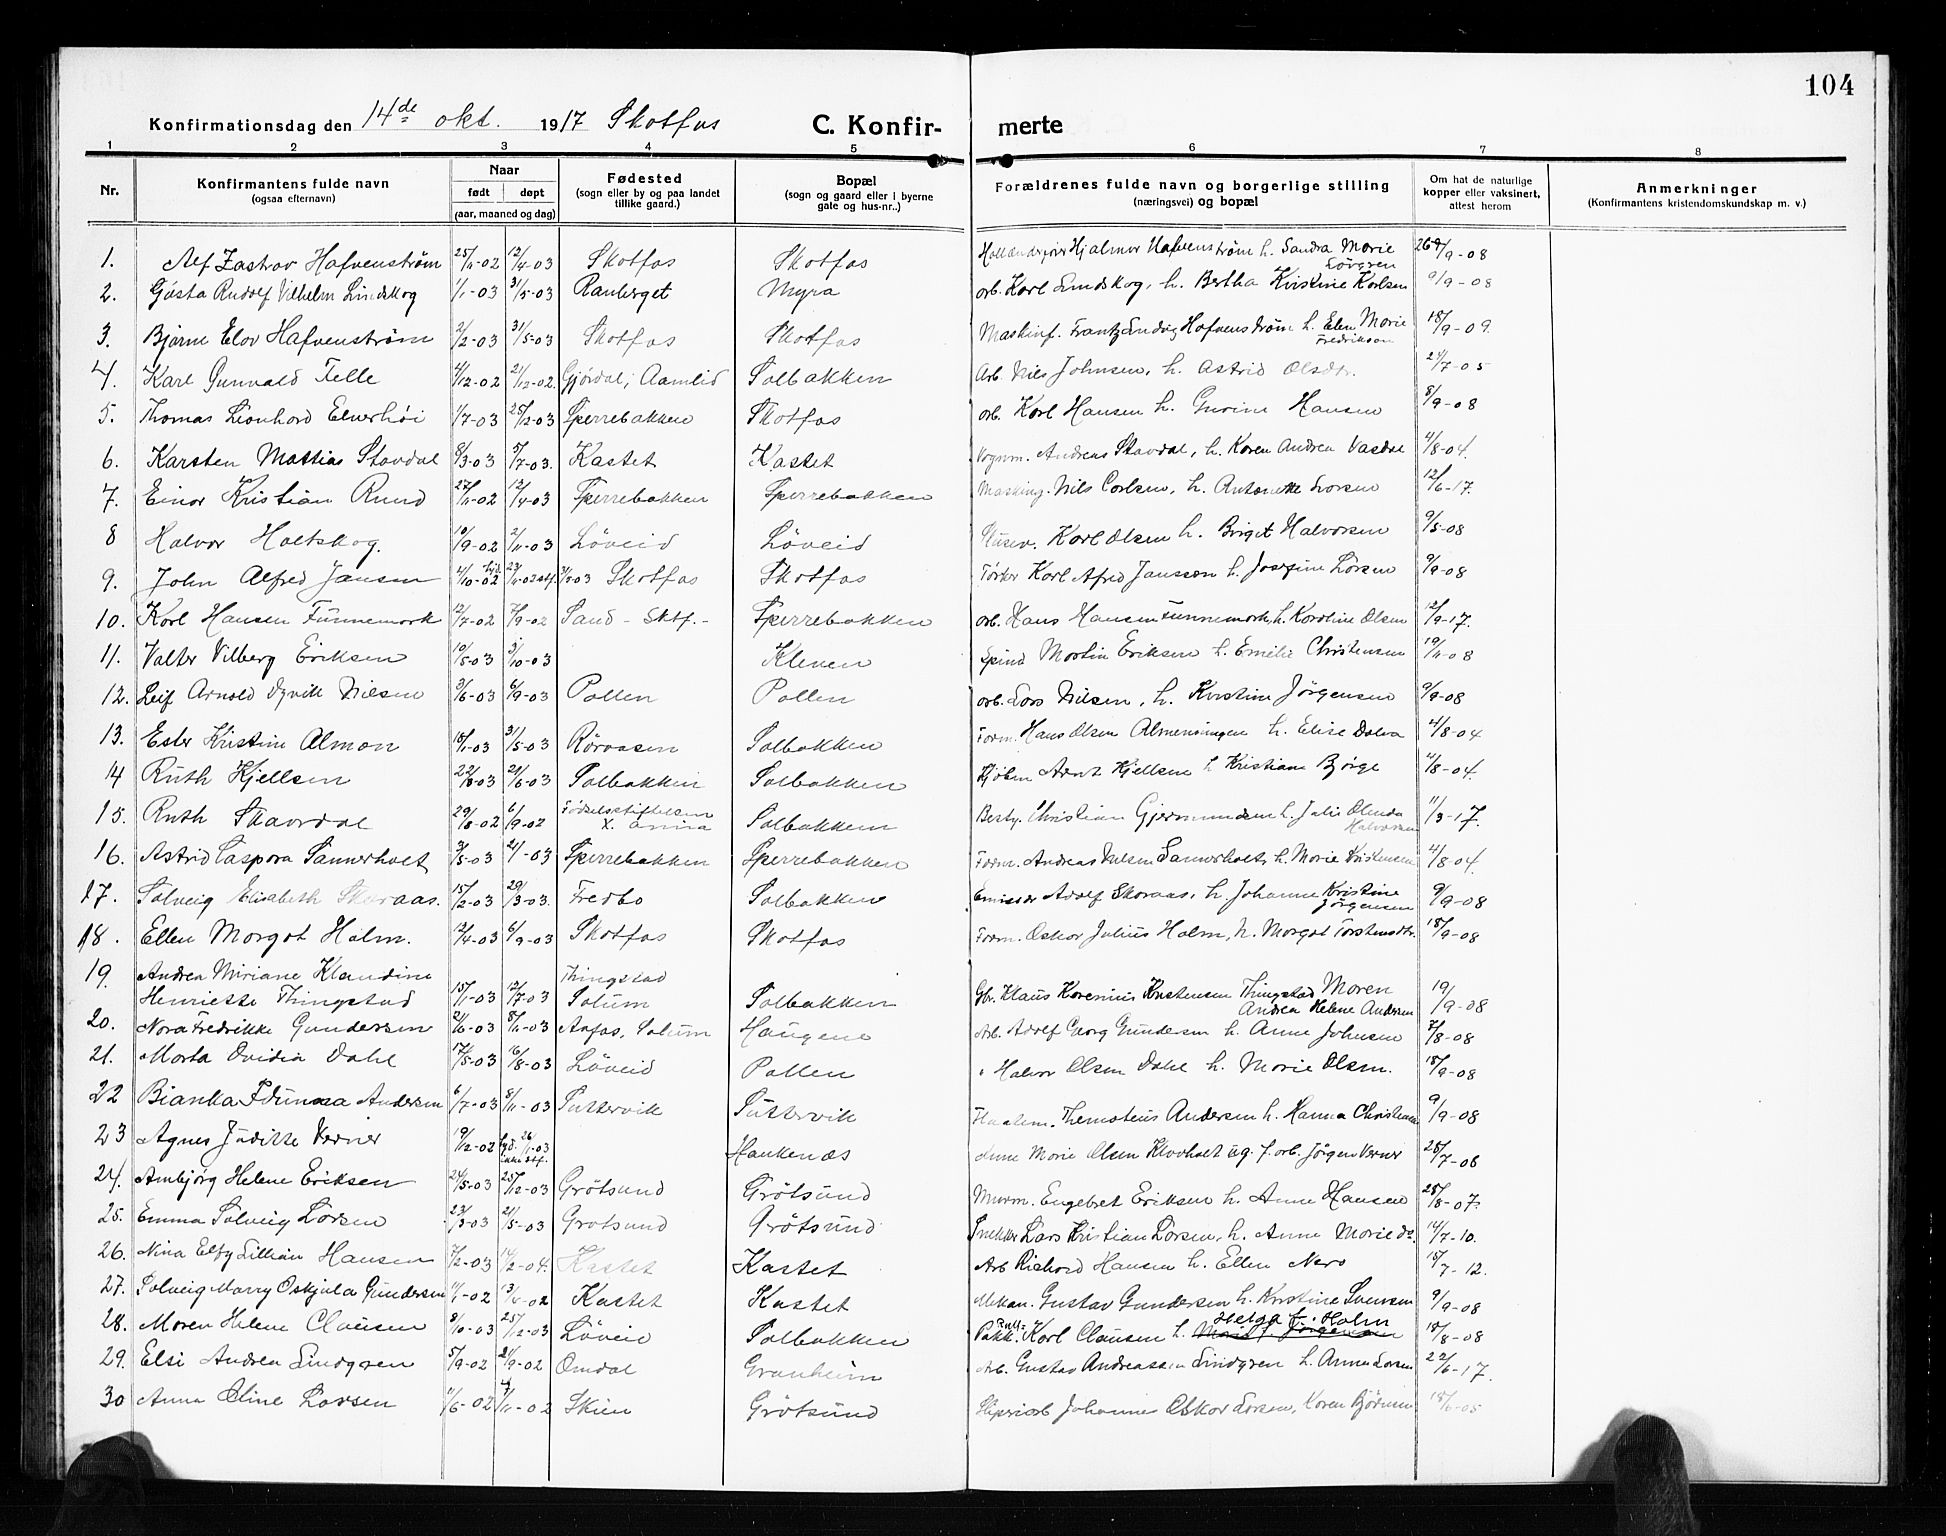 104
Konfirmationsdag den 14de okt. 1917 Skotfos C. Konfir- merte
1 2 3 4 5 6 7 8
Nr. Konfirmantens fulde navn (ogsaa efternavn) Naar født døpt (aar, maaned og dag) Fødested (sogn eller by og paa landet tillike gaard.) Bopæl (sogn og gaard eller i byerne gate og hus-nr..) Forældrenes fulde navn og borgerlige stilling (næringsvei) og bopæl Om hat de naturlige kopper eller vaksinert, attest herom Anmerkninger (Konfirmantens kristendomskundskap m. v.)
1. Alf Zastrov Hafvenström 25/11-02 12/4-03 Skotfos Skotfos Hjalmar Hafvenström h. Sandra Marie Lövgren 26/9-08
2. Gösta Rudolf Vilhelm Lindskog 1/1-03 31/5-03 Ranberget Myra arb. Karl Lindskog, h. Bertha Kristine Karlsen 9/9-08
3. Bjarne Elov Hafvenstrøm 2/2-03 31/5-03 Skotfos Skotfos Maskinf. Frantz Ludvig Hafvenstrøm h. Elen Marie Fredrikson 18/9-09.
4. Karl Gunvald Telle 4/12-02 21/12-02. Gjördal, Aamlid Solbakken Arb. Nils Johnsen, h. Astrid Olsdtr. 24/7-05
5. Thomas Leonhard Elverhöi 1/7-03 25/12-03 Sperrebakken Skotfos arb. Karl Hansen h. Gurine Hansen 8/9-08
6. Karsten Mattias Stavdal 8/3-03 5/7-03. Kastet Kastet Vognm. Andreas Stavdal, h. Karen Andrea Vasdal 4/8-04.
7. Einar Kristian Ruud 27/11-02 12/4-03 Sperrebakken Sperrebakken Masking. Nils Carlsen, h. Antonette Larsen 12/6-17.
8 Halvor Holtskog. 10/9-02 2/11-03 Löveid Löveid Slusev. Karl Olsen h. Birgit Halvorsen 9/5-08
9. John Alfred Jansen 4/10-02 3/5-03 Skotfos Skotfos Karl Afred Janssen h. Josefine Larsen 9/9-08
10. Karl Hansen Funnemark 12/7-02 7/9-02 Sand - Sktf.- Sperrebakken arb. Hans Hansen Funnemark, h. Karoline Olsen 12/9-17.
11. Valter Vilberg Eriksen 10/5-03 3/10-03 Kleven Martin Eriksen h. Emelie Christensen 19/11-08
12. Leif Arnold Dyvik Nilsen 3/6-03 6/9-03 Pollen Pollen arb. Lars Nilsen, h. Kristine Jörgensen 9/9-08
13. Ester Kristine Alman 18/1-03 31/5-03 Röraasen Solbakken Form. Hans Olsen Almenningen h. Elise Dalva 4/8-04
14 Ruth Kjellsen 22/8-03 21/6-03 Solbakken Solbakken Kjöbm Arnt Kjellsen h Kristiane Bjørge 4/8-04.
15. Ruth Skavrdal 29/8-02 6/9-02 Födselsstiftelsen X.ania Solbakken Besty. Christian Gjermundsen h. Julie Olenda Halvorsen 11/3-17.
16. Astrid Caspara Sannerholt 3/5-03 21/-03 Sperrebakken Sperrebakken Form. Andreas Nilsen Sannerholt, h. Marie Kristensen 4/8-04.
17. Solveig Elisabeth Skaraas. 15/2-03 29/3-03. Fredbo Solbakken Emissær Adolf Skoraas, h. Johanne Kristine Jörgensen 9/9-08
18. Ellen Margot Holm. 12/4-03 6/9-03 Skotfos Skotfos Form. Oskar Julius Holm, h. Margot Torstensdtr. 18/9-08
19. Andrea Miriane Klaudine Henriette Thingstad 15/1-03 12/7-03 Thingstad Solum Solbakken Gbr. Klaus Korenius Kristensen Thingstad Maren Andrea Helene Andersen 19/9-08
20. Nora Fredrikke Gundersen 21/6-03 8/11-03 Aafos, Solum Haugene Arb. Adolf Georg Gundersen h. Anne Johnsen 7/8-08
21. Marta Ovidia Dahl 17/5-03 16/8-03 Löveid Pollen Halvor Olsen Dahl h. Marie Olsen. 18/9-08
22 Bianka Andersen 6/7-03 8/11-03 Puttervik Puttervik Andersen h. Hanna Christensen 9/9-08
23 Agnes Juditte Verner 19/12-02 26/1-03 Haukenæs Anne Marie Olsen Klovholt ug. f. arb. Jörgen Verner 28/7-06
24. Ambjörg Helene Eriksen 24/5-03 25/12-03 Grötsund Grötsund Murm. Engebret Eriksen h. Anne Hansen 28/8-07.
25. Emma Solveig Larsen 23/3-03 21/5-03 Grotsund Grötsund Snekker Lars Kristian Larsen, h. Anne Marie do. 14/7-10.
26. Nina Elfy Lillian Hansen 7/2-03 14/2-04. Kastet Kastet Arb Richard Hansen h. Ellen Nero 15/7-12.
27. Solveig Marry Oskjula Gundersen 11/1-02 13/4-02 Kastet Kastet Mekan. Gustav Gundersen h. Kristine Svensen 9/9-08
28. Maren Helene Clausen 9/10-03 25/12-03 Löveid Solbakken Karl Clausen h. Helga F. Holm 18/8-08
29. Elsi Andrea Lindgren 5/9-02 21/9-02 Omdal Granheim Arb. Gustav Andreassen Lindgren h. Anna Larsen 22/6-17.
30 Anna Oline Larsen 11/6-02 9/11-02 Skien Grötsund Sliperiarb Johannes Oskar Larsen, Karen Björnsen 18/6-05